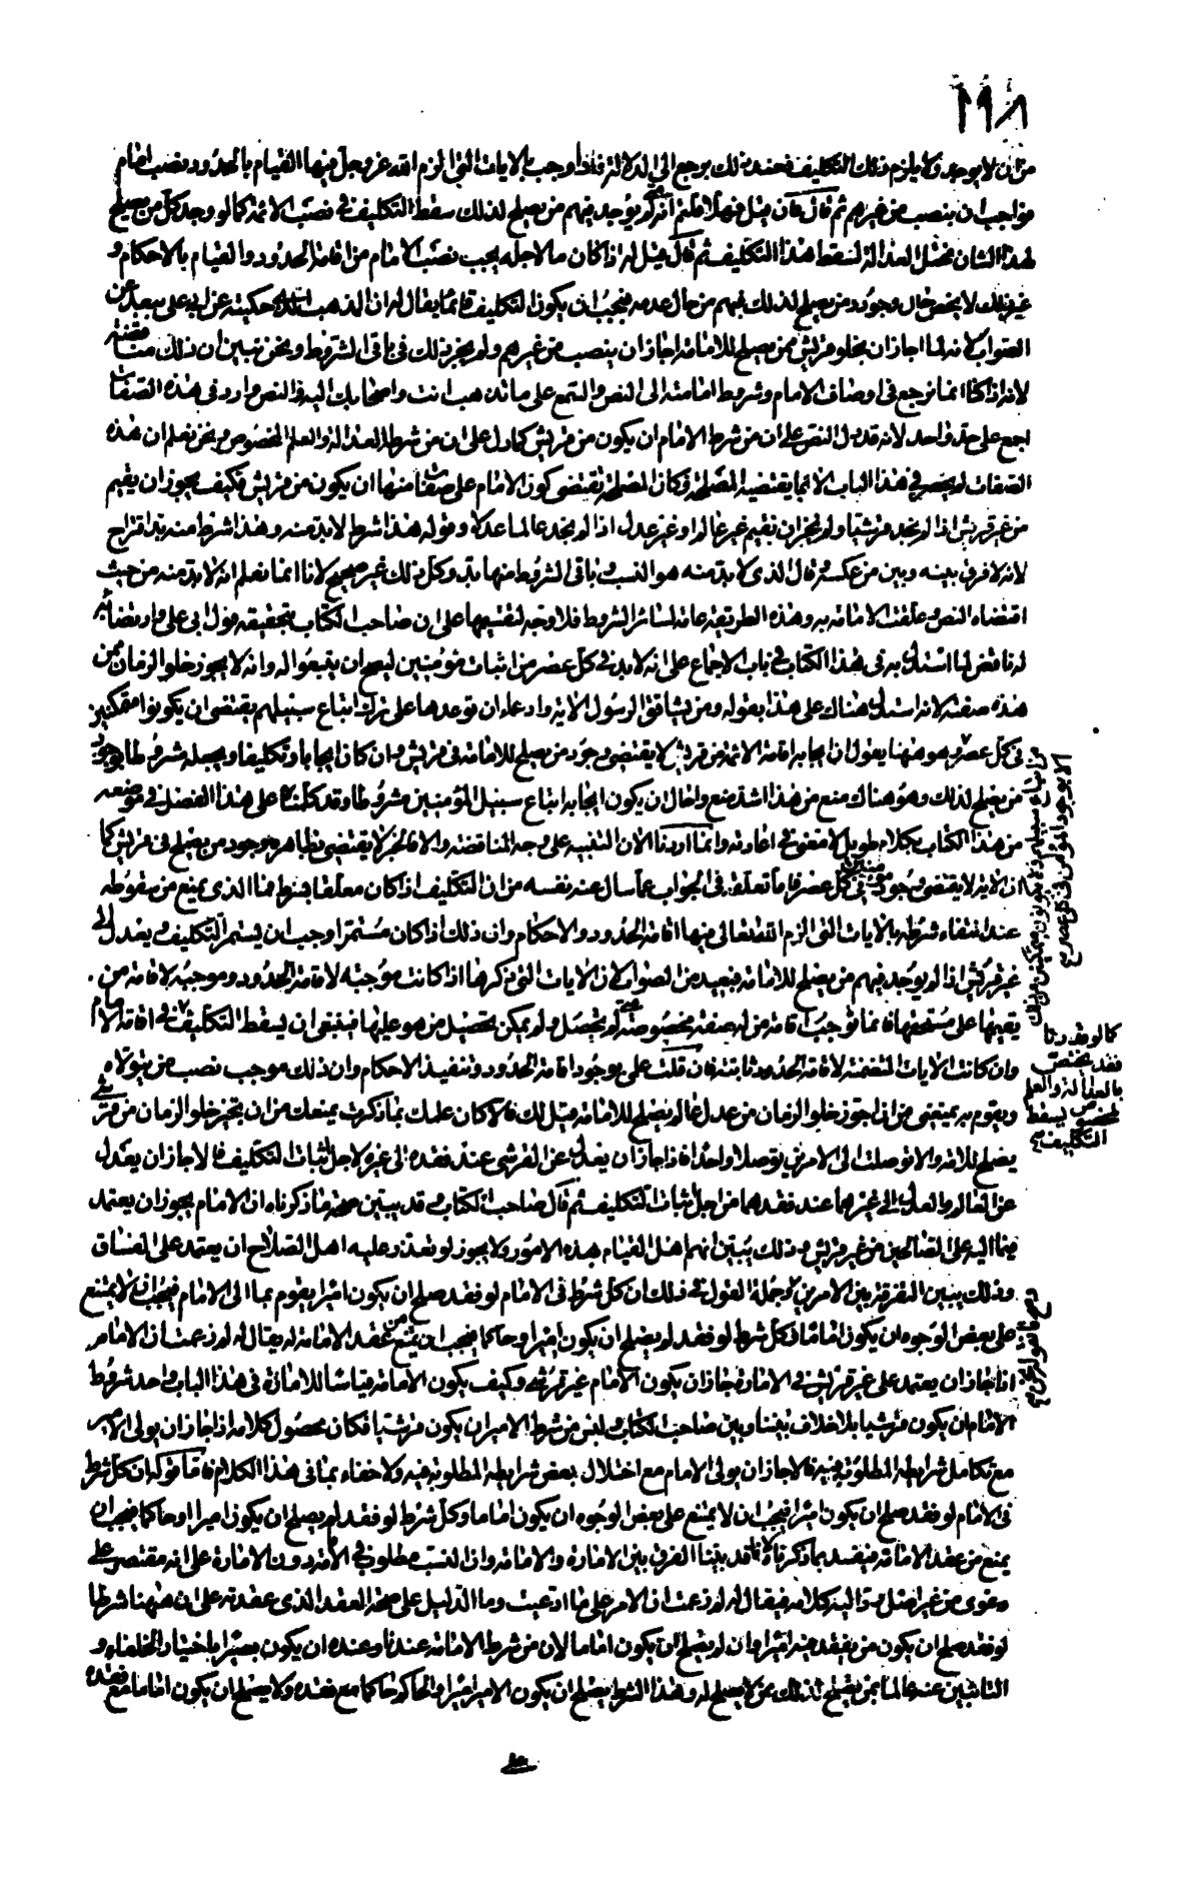 ١٩٨
من ان لا يوجد ولا يلزم ذلك التكليف فعند ذلك يرجع الى الدلالة فاذا وجب بالايات التي الزم الله عز وجل فيها القيام بالحدود ونصب امام
فواجب ان ينصب من غيرهم ثم قال فان قيل فهلا قلتم انه لو لم يوجد فيهم من يصلح لذلك سقط التكليف في نصب الائمة كما لو وجد كل من يصلح
لهذا الشان مختل العدالة لسقط هذا التكليف ثم قال قيل له اذا كان ما لاجله يجب نصب الامام من اقامة الحدود والقيام بالاحكام و
غير ذلك لا يختص حال وجود من يصلح لذلك فيهم من حال عدمه فيجب ان يكون التكليف قائما يقال له ان المذهب الذي حكيته عن ابي علي بعيد عن
الصواب لانه لما اجاز ان يخلو قريش ممن يصلح للامامة اجاز ان ينصب من غيرهم ولم يجز ذلك في باقي الشروط ونحن نبين ان ذلك مناقضة
لانه اذا كنا انما نرجع في اوصاف الامام وشروط امامته الى النص والسمع على ما تذهب انت واصحابك اليه فالنص وارد في هذه الصفات
اجمع على حد واحد لانه قد دل النص على ان من شرط الامام ان يكون من قريش كما دل على ان من شرط العدالة والعلم المخصوص ونحن نعلم ان هذه
الصفات لم يعتبر في هذا الباب الا لما يقتضيه المصلحة فكان المصلحة تقتضي كون الامام على صفات منها ان يكون من قريش فكيف يجوز ان يقيم
من غير قريش اذا لم نجد قرشيا ولم نجز ان نقيم غير عالم او غير عدل اذا لم نجد عالما عدلا وقوله هذا شرط لا بد منه وهذا شرط منه بد اقتراح
لانه لا فرق بينه وبين من عكس وقال الذي لا بد منه هو النسب وباقي الشروط منها بد وكل ذلك غير صحيح لانا انما نعلم انه لا بد منه من حيث
اقتضاه النص وعلقت الامامة به وهذه الطريقة عامة لسائر الشروط فلا وجه لتقسيمها على ان صاحب الكتاب بتحقيقه قول ابي علي وارتضائه
له ناقض لما استدل به في هذا الكتاب في باب الاجماع على انه لا بد في كل عصر من اثبات مؤمنين ليصح ان يتبعوا له وانه لا يجوز خلو الزمان ممن
هذه صفته لانه استدل هناك على هذا بقوله ومن يشاقق الرسول الاية وادعاءه ان توعدها على ترك اتباع سبيلهم يقتضي ان يكونوا متمكنين
في كل عصر وهو هنا يقول ان ايجابه اقامة الائمة من قريش لا يقتضي وجود من يصلح للامامة في قريش وان كان ايجابا وتكليفا ويجعله مشروطا بوجود
من يصلح لذلك وهو هناك منع من هذا اشد منع واحال ان يكون ايجابه اتباع سبيل المؤمنين مشروطا وقد كلمناه على هذا الفصل في موضعه
من هذا الكتاب بكلام طويل لا معنى في اعادته وانما اردنا الان التنبيه على وجه المناقضة والا فالخبر لا يقتضي بظاهره وجود من يصلح في قريش كما
ان الاية لا يقتضي وجود مؤمنين في كل عصر فاما تعلقه في الجواب عما سال عنه نفسه من ان التكليف اذا كان معلقا بشرط فما الذي يمنع من سقوطه
عند انتفاء شرطه بالايات التي الزم الله تعالى فيها اقامة الحدود والاحكام وان ذلك اذا كان مستمرا وجب ان يستمر التكليف ويعدل الى
غير قريش اذا لم يوجد فيهم من يصلح للامامة فبعيد من الصواب لان الايات التي ذكرها اذا كانت موجبة لاقامة الحدود وموجبة لاقامة من
يقيمها على مستحقها فانما توجب اقامة من له صفة مخصوصة فمتى لم تحصل ولم يمكن تحصيل من هو عليها فينبغي ان يسقط التكليف في اقامة الامام
وان كانت الايات المتضمنة لاقامة الحدود ثابتة فان قلت على وجود اقامة الحدود وتنفيذ الاحكام وان ذلك موجب نصب من يتولاه
ويقوم به يمنعني من ان اجوز خلو الزمان من عدل عالم يصلح للامامة قيل لك فالا كان علمك بما ذكرت يمنعك من ان تجيز خلو الزمان من قرشي
يصلح للامامة والا توصلت الى الامرين توصلا واحدا فاذا جاز ان يعدل عن القرشي عند فقده الى غيره لاجل ثبات التكليف فالا جاز ان يعدل
عن العالم والعدل الى غيرهما عند فقدهما من اجل ثبات التكليف ثم قال صاحب الكتاب وقد يبين صحة ما ذكرناه ان الامام يجوز ان يعتمد
فيما اليه على الصالحين من غير قريش وذلك يبين انهم اهل القيام بهذه الامور ولا يجوز لو تعذر عليه اهل الصلاح ان يعتمد على الفساق
وذلك يبين التفرقة بين الامرين وجملة القول في ذلك ان كل شرط في الامام لو فقد صلح ان يكون اميرا يقوم بما الى الامام فيجب ان لا يمتنع
على بعض الوجوه ان يكون اماما فكل شرط لو فقد لم يصلح ان يكون اميرا وحاكما فيجب ان يمنع من عقد الامامة له يقال له لم زعمت ان الامام
اذا جاز ان يعتمد على غير قريش في الامارة جاز ان يكون الامام غير قرشي وكيف يكون الامامة قياسا للامارة في هذا الباب واحد شروط
الامام ان يكون قرشيا بلا خلاف بيننا وبين صاحب الكتاب وليس من شرط الامير ان يكون قرشيا فكان محصول كلامه اذا جاز ان يولى الامير
مع تكامل شرايطه المطلوبة فيه فالا جاز ان يولى الامام مع اختلال بعض شرايطه المطلوبة فيه ولا خفاء بما في هذا الكلام فاما قوله ان كل شرط
في الامام لو فقد صلح ان يكون اميرا فيجب ان لا يمتنع على بعض الوجوه ان يكون اماما وكل شرط لو فقد لم يصلح ان يكون اميرا او حاكما فيجب ان
يمنع من عقد الامامة فيفسد بما ذكرناه لانا قد بينا الفرق بين الامارة والامامة وان النسب مطلوب في الامامة دون الامارة على انه مقتصر على
دعوى من غير اصل يرد اليه كلامه فيقال له لم زعمت ان الامر على ما ادعيت وما الدليل على صحة العقد الذي عقدته على ان ههنا شرطا
لو فقد صلح ان يكون من يفقد فيه اميرا وان لم يصلح ان يكون اماما لان من شرط الامامة عندنا وعنده ان يكون بصيرا باختيار الخلفاء و
النائبين عنه عالما بمن يصلح لذلك ممن لا يصلح له وهذا الشرط يصلح ان يكون الامير اميرا والحاكم حاكما مع فقده ولا يصلح ان يكون اماما مع فقده
كما لو قدرنا
فقد مختص
بالعدالة والعلم
المخصوص لسقط
التكليف